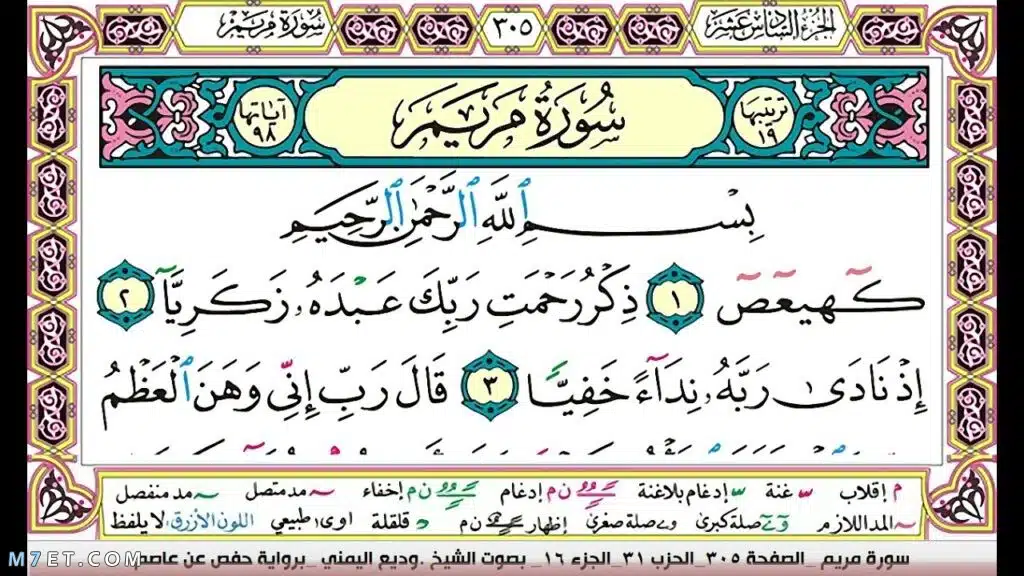 الجزء السادس عشر ٣٠٥ سورة مريم
ترتيبها ١٩ سورة مريم آياتها ٩٨
بِسْمِ ٱللَّهِ ٱلرَّحْمَٰنِ ٱلرَّحِيمِ
كٓهيعٓصٓ ١ ذِكْرُ رَحْمَتِ رَبِّكَ عَبْدَهُۥ زَكَرِيَّآ ٢
إِذْ نَادَىٰ رَبَّهُۥ نِدَآءً خَفِيًّا ٣ قَالَ رَبِّ إِنِّي وَهَنَ ٱلْعَظْمُ
م إقلاب س غنة س إدغام بلاغنة ن م إدغام ن م إخفاء مد متصل مد منفصل
المد اللازم صلة كبرى صلة صغرى إظهار ن م اوى طبيعي د قلقلة اللون الأزرق لا يلفظ
سورة مريم _الصفحة ٣٠٥_ الحزب ٣١_الجزء ١٦_ بصوت الشيخ .وديع اليمني _برواية حفص عن عاصم
M7ET.COM